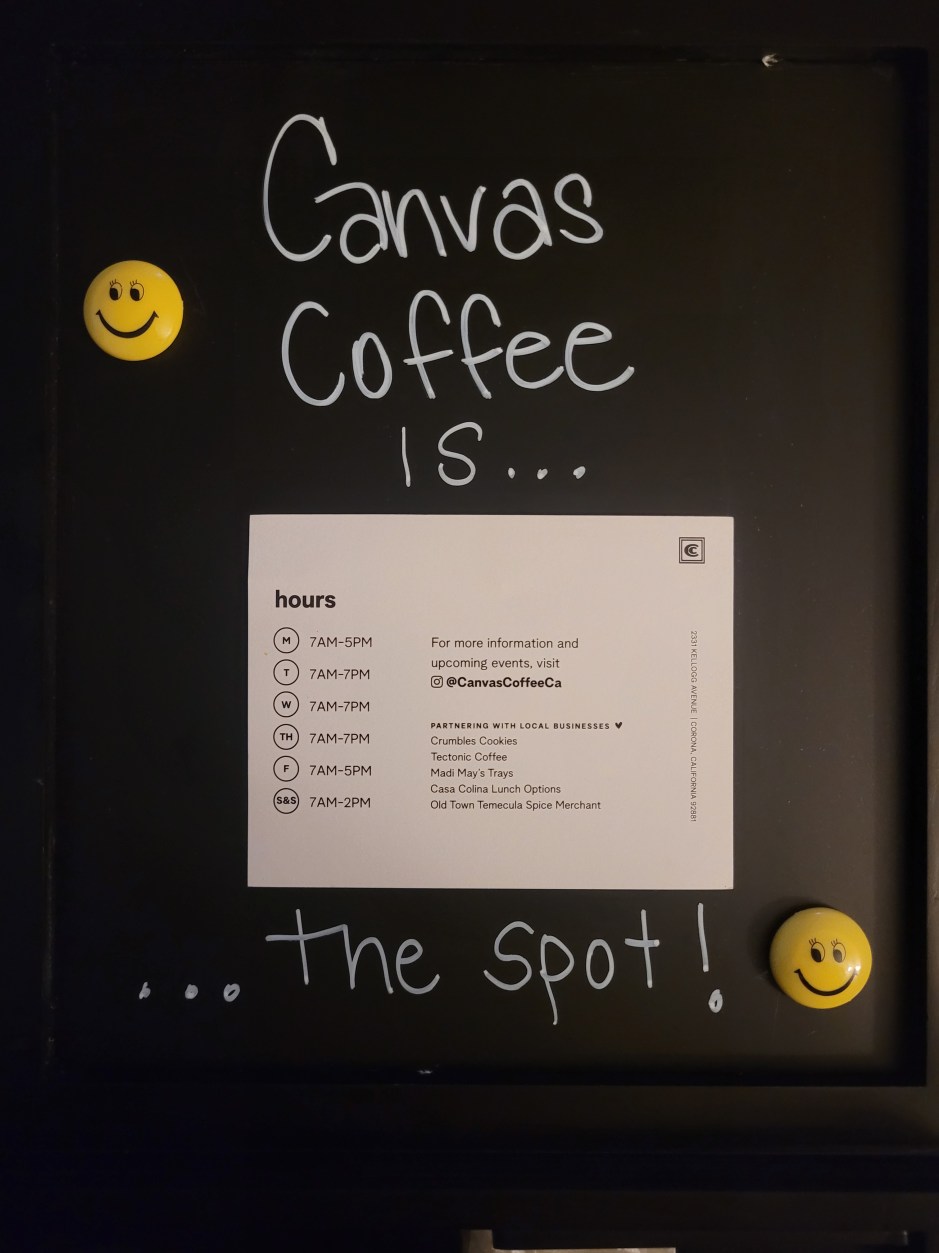 Canvas
Coffee
IS...
hours
M 7AM-5PM
T 7AM-7PM
W 7AM-7PM
TH 7AM-7PM
F 7AM-5PM
S&S 7AM-2PM
For more information and
upcoming events, visit
@CanvasCoffeeCa
PARTNERING WITH LOCAL BUSINESSES
Crumbles Cookies
Tectonic Coffee
Madi May's Trays
Casa Colina Lunch Options
Old Town Temecula Spice Merchant
2331 KELLOGG AVENUE | CORONA, CALIFORNIA 92881
...the spot!